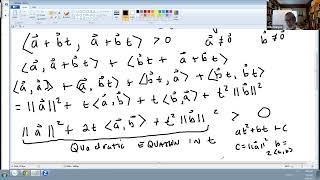 ⟨a⃗ + b⃗t, a⃗ + b⃗t⟩ > 0   a⃗ ≠ 0   b⃗ ≠ 0
⟨a⃗, a⃗ + b⃗t⟩ + ⟨b⃗t, a⃗ + b⃗t⟩
⟨a⃗, a⃗⟩ + ⟨a⃗, b⃗t⟩ + ⟨b⃗t, a⃗⟩ + ⟨b⃗t, b⃗t⟩ =
= ||a⃗||² + t⟨a⃗, b⃗⟩ + t⟨a⃗, b⃗⟩ + t²||b⃗||²
||a⃗||² + 2t⟨a⃗, b⃗⟩ + t²||b⃗||² > 0
at² + bt + c
QUADRATIC EQUATION IN t
c = ||a⃗||² b =
2⟨a, b⟩